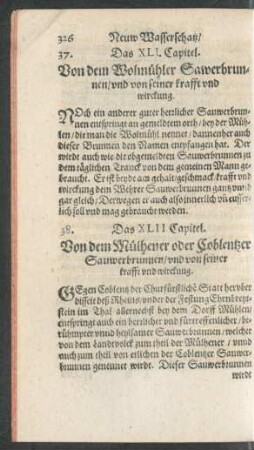 326 Neuw Wasserschatz/
37. Das XLI. Capitel.
Von dem Wolmühler Sawerbrun-
nen/vnd von seiner krafft vnd
wirckung.
NOch ein anderer guter herrlicher Sauwerbrun-
nen entspringt an gemeldtem orth/bey der Müh-
len/die man die Wolmühl nennet/dannenher auch
dieser Brunnen den Namen empfangen hat. Der
wirdt auch wie die obgemeldten Sauwerbrunnen zu
dem täglichen Tranck von dem gemeinen Mann ge-
braucht. Er ist beyde am gehalt/geschmack krafft vnd
wirckung dem Wehrer Sauwerbrunnen gantz vnnd
gar gleich/Derwegen er auch also innerlich vñ eusser-
lich soll vnd mag gebraucht werden.
38. Das XLII Capitel.
Von dem Mülhener oder Coblentzer
Sauwerbrunnen/vnd von seiner
krafft vnd wirckung.
GEgen Coblentz der Churfürstliche Statt herüber
disseit deß Rheins/vnder der Festung Ehrnbreyt-
stein im Thal allernechst bey dem Dorff Mühlen/
entspringt auch ein herrlicher vnd fürtreffenlicher/be-
rühmpter vnnd heylsamer Sauwerbrunnen/welcher
von dem Landtvolck zum theil der Mülhener/vnnd
auch zum theil von etlichen der Coblentzer Sauwer-
brunnen genennet wirdt. Dieser Sauwerbrunnen
wirdt